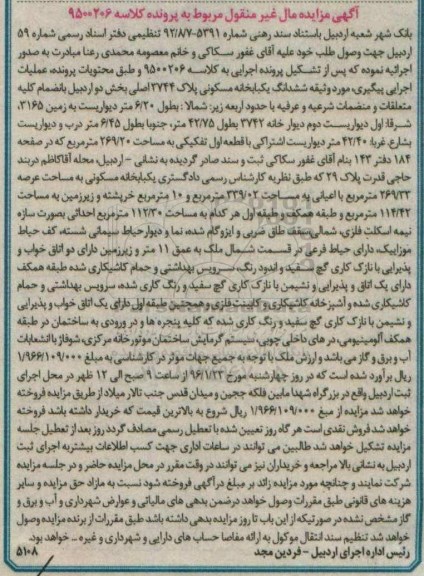 آگهی مزایده مال غیر منقول مربوط به پرونده کلاسه ۹۵۰۰۲۰۶
بانک شهر شعبه اردبیل باستناد سند رهنی شماره ۵۳۹۱-۹۲/۸/۷ تنظیمی دفتر اسناد رسمی شماره ۵۹
اردبیل جهت وصول طلب خود علیه آقای غفور سکاکی و خانم معصومه محمدی رعنا مبادرت به صدور
اجرائیه نموده که پس از تشکیل پرونده اجرایی به کلاسه ۹۵۰۰۲۰۶ و طبق محتویات پرونده، عملیات
اجرایی پیگیری، مورد وثیقه ششدانگ یکبابخانه مسکونی پلاک ۳۷۴۴ اصلی بخش دو اردبیل بانضمام کلیه
متعلقات و منضمات شرعیه و عرفیه با حدود اربعه زیر: شمالا: بطول ۶/۲۰ متر دیواریست به زمین ۳۱۶۵،
شرقا: اول دیواریست دوم دیوار خانه ۳۷۴۲ بطول ۴۲/۷۵ متر، جنوبا بطول ۶/۴۵ متر درب و دیواریست
بشارع، غربا: ۴۲/۴۰ متر دیواریست اشتراکی با قطعه اول تفکیکی به مساحت ۲۶۹/۲۰ مترمربع که در صفحه
۱۸۴ دفتر ۱۴۳ بنام آقای غفور سکاکی ثبت و سند صادر گردیده به نشانی - اردبیل، محله آقاکاظم دربند
حاجی قدرت پلاک ۲۹ که طبق نظریه کارشناس رسمی دادگستری یکبابخانه مسکونی به مساحت عرصه
۲۶۹/۳۳ مترمربع با اعیانی به مساحت ۳۳۹/۰۲ مترمربع و ۱۰ مترمربع خرپشته و زیرزمین به مساحت
۱۱۴/۴۲ مترمربع و طبقه همکف و طبقه اول هر کدام به مساحت ۱۱۲/۳۰ مترمربع احداثی بصورت سازه
نیمه اسکلت فلزی، شمالی، سقف طاق ضربی و ایزوگام شده، نما و دیوار حیاط سیمانی شسته، کف حیاط
موزاییک، دارای حیاط فرعی در قسمت شمال ملک به عمق ۱۱ متر و زیرزمین دارای دو اتاق خواب و
پذیرایی با نازک کاری گچ سفید و اندود رنگ، سرویس بهداشتی و حمام کاشیکاری شده طبقه همکف
دارای یک اتاق و پذیرایی و نشیمن با نازک کاری گچ سفید و رنگ کاری شده، سرویس بهداشتی و حمام
کاشیکاری شده و آشپزخانه کاشیکاری و کابینت فلزی و همچنین طبقه اول دارای یک اتاق خواب و پذیرایی
و نشیمن با نازک کاری گچ سفید و رنگ کاری شده که کلیه پنجره ها و در ورودی به ساختمان در طبقه
همکف آلومینیومی، در های داخلی چوبی، سیستم گرمایش ساختمان موتورخانه مرکزی، شوفاژ با انشعابات
آب و برق و گاز می باشد و ارزش ملک با توجه به جمیع جهات موثر در کارشناسی به مبلغ ۱/۹۶۶/۱۰۹/۰۰۰
ریال برآورد شده است که در روز چهارشنبه مورخ ۹۶/۱/۲۳ از ساعت ۹ صبح الی ۱۲ ظهر در محل اجرای
ثبت اردبیل واقع در بزرگراه شهدا مابین فلکه ججین و میدان قدس جنب تالار میلاد از طریق مزایده فروخته
خواهد شد مزایده از مبلغ ۱/۹۶۶/۱۰۹/۰۰۰ ریال شروع به بالاترین قیمت که خریدار داشته باشد فروخته
خواهد شد فروش نقدی است هر گاه روز تعیین شده با تعطیل رسمی مصادف گردد روز بعد از تعطیل جلسه
مزایده تشکیل خواهد شد طالبین می توانند در ساعات اداری جهت کسب اطلاعات بیشتر به اجرای ثبت
اردبیل به نشانی بالا مراجعه و خریداران نیز می توانند در وقت مقرر در محل مزایده حاضر و در جلسه مزایده
شرکت نمایند و چنانچه مورد مزایده زائد بر مبلغ در آگهی فروخته شود نسبت به مازاد حق مزایده و سایر
هزینه های قانونی طبق مقررات وصول خواهد درضمن بدهی های مالیاتی و عوارض شهرداری و آب و برق و
گاز مشخص نشده در صورتیکه از این باب تا روز مزایده بدهی داشته باشد طبق مقررات از برنده مزایده وصول
خواهد شد تنظیم سند انتقال موکول به ارائه مفاصا حساب های دارایی و شهرداری و غیره .. خواهد بود.
رئیس اداره اجرای اردبیل - فردین مجد ۵۱۰۸